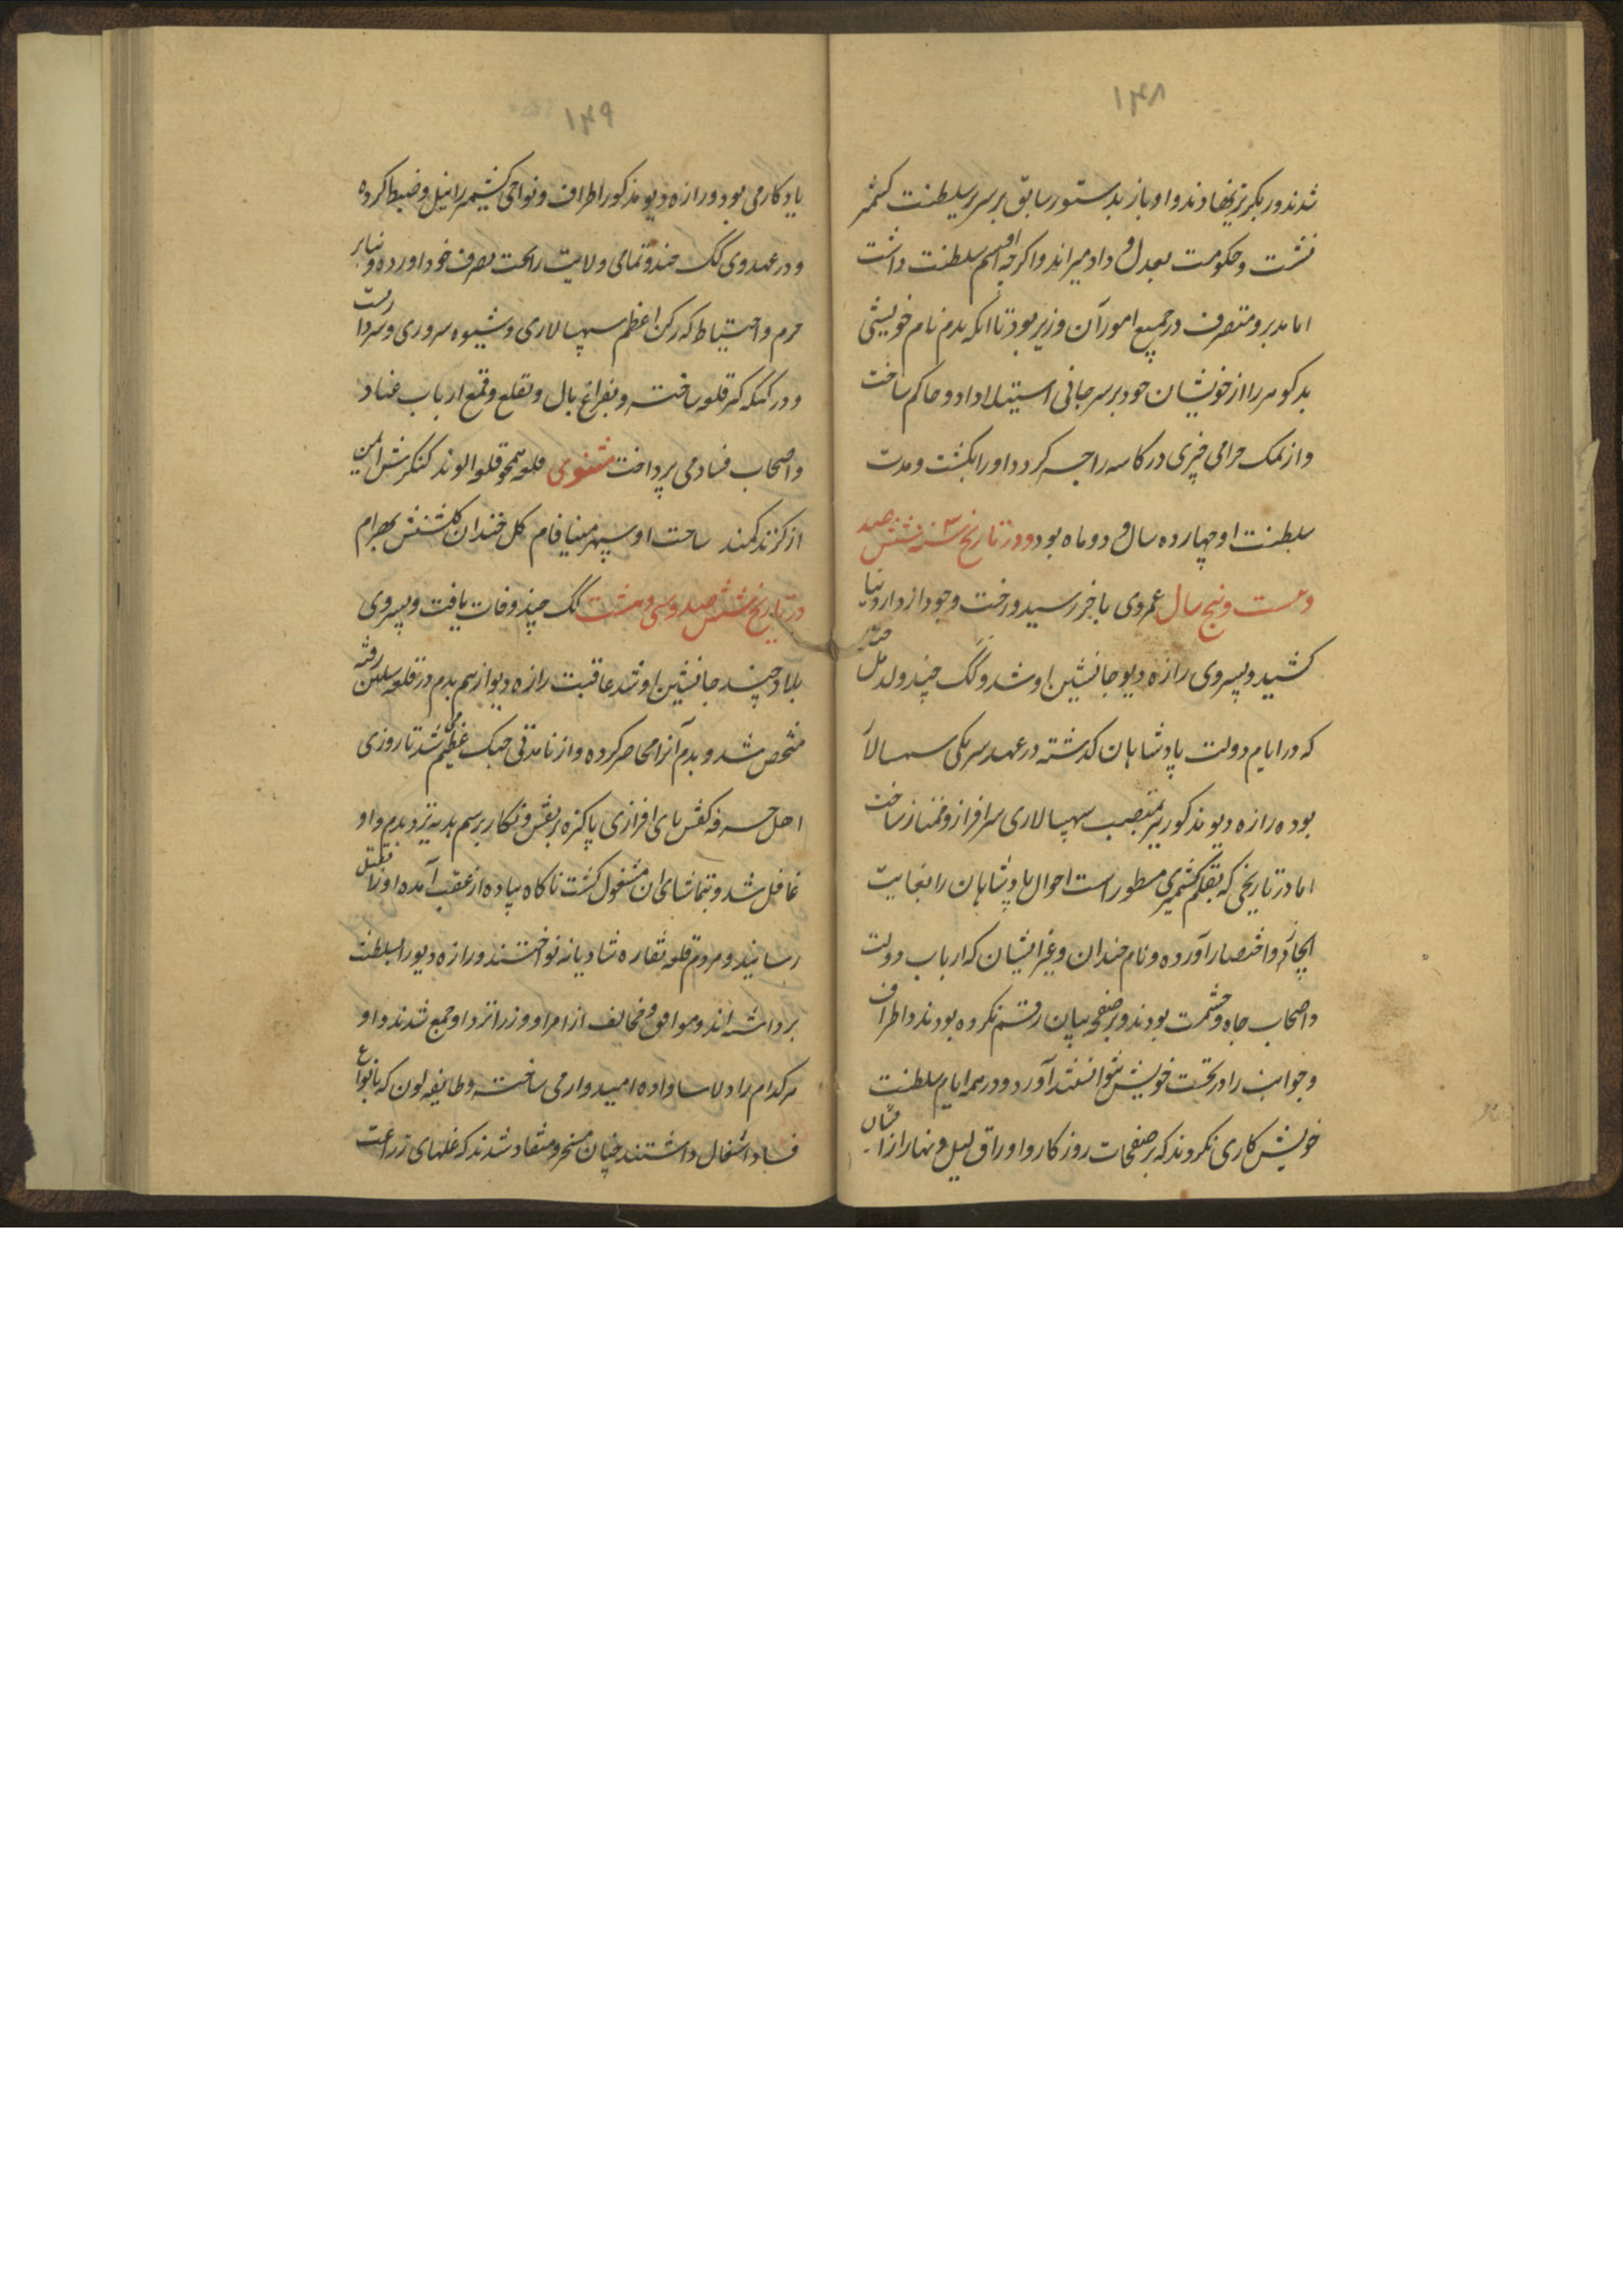 ۱۴۸
شدند در بکر نزیفتادند و او باز بدستور سابق بر سریر سلطنت کشمیر
نشست و حکومت بعدل و داد میراند و اکرچه او اسم سلطنت داشت
اما مدبر و متصرف در جمیع امور آن وزیر بود تا آنکه بدم نام خویشی
بد کوهر را از خویشان خود بر سر جانی استیلا داد و حاکم ساخت
و از نمک حرامی چیزی در کاسه راجه کرد و او را بکشت و مدت
سلطنت او چهارده سال و دو ماه بود و در تاریخ سنه ششصد
و بیست و پنج سال عمر وی باخر رسید و رخت وجود از دار دنیا
کشید و پسر وی رازه دیو جانشین او شد و لک چند ولد مل چند
که در ایام دولت پادشاهان کذشته در عهد هر یکی سپه سالار
بوده رازه دیو مذکور نیز بمنصب سپهسالاری سرافراز و ممتاز ساخت
اما در تاریخی که بقلم کشمیری مسطور است احوال پادشاهان را بغایت
ایجاز و اختصار آورده و نام چندان و غیر ایشان که ارباب دولت
و اصحاب جاه و حشمت بودند و بر صفحه بیان رقم نکرده بودند و اطراف
و جوانب را در تحت خویش نتوانستند آورد و در همه ایام سلطنت
خویش کاری نکردند که بر صفحات روزکار و اوراق لیل و نهار از ایشان
۱۴۹
یادکار می بود و رازه دیو مذکور اطراف و نواحی کشمیر را نیل و ضبط کرده
و در عهد وی لک چند تمامی ولایت را تحت تصرف خود آورده و بنابر
حزم و احتیاط که رکن اعظم سپهسالاری و شیوه سروری و سرداریست
و در لنکه کر قلعه ساخته و بفراغ بال و بقلع و قمع ارباب عناد
و اصحاب فساد می پرداخت مثنوی قلعه همچو قلعه الوند کنکرش ایمن
از کزند کمند ساحت او سپهر مینافام کل خندان کلشنش بهرام
در تاریخ ششصد و سی و هشت لک چند وفات یافت و پسر وی
بلاد چند جانشین او شد عاقبت رازه دیو از سهم بدم در قلعه سلهن رفته
متحصن شد و بدم آنرا محاصر کرده و از نا مدتی جنک عظیم می شد تا روزی
اهل حرفه کفش پای افزاری پاکیزه بر نقش و نکار برسم هدیه نزد بدم و او
غافل شد و بتماشای آن مشغول کشت ناکاه پیاده از عقب آمده او را بقتل
رسانید و مردم قلعه نقاره شادیانه نواختند و رازه دیو را بسلطنت
برداشته اند و موافق و مخالف از امرا و وزرا نزد او جمع شدند و او
هر کدام را دلاسا داده امیدوار می ساخت و طایفه لون که بانواع
فساد اشتغال داشتند چنان مسخر و منقاد شدند که غلهای زراعت